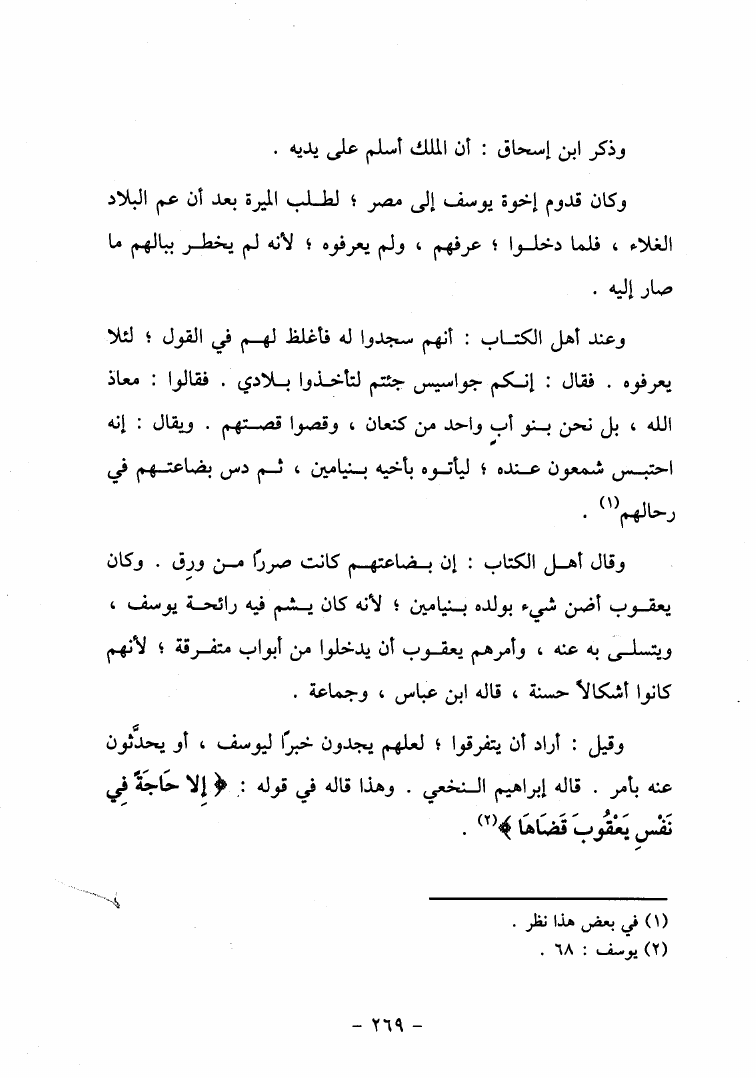 وذكر ابن إسحاق : أن الملك أسلم على يديه .
وكان قدوم إخوة يوسف إلى مصر ؛ لطلب الميرة بعد أن عم البلاد
الغلاء ، فلما دخلوا ؛ عرفهم ، ولم يعرفوه ؛ لأنه لم يخطر ببالهم ما
صار إليه .
وعند أهل الكتاب : أنهم سجدوا له فأغلظ لهم في القول ؛ لئلا
يعرفوه . فقال : إنكم جواسيس جئتم لتأخذوا بلادي . فقالوا : معاذ
الله ، بل نحن بنو أبٍ واحد من كنعان ، وقصوا قصتهم . ويقال : إنه
احتبس شمعون عنده ؛ ليأتوه بأخيه بنيامين ، ثم دس بضاعتهم في
رحالهم(١) .
وقال أهل الكتاب : إن بضاعتهم كانت صررًا من ورِق . وكان
يعقوب أضن شيء بولده بنيامين ؛ لأنه كان يشم فيه رائحة يوسف ،
ويتسلى به عنه ، وأمرهم يعقوب أن يدخلوا من أبواب متفرقة ؛ لأنهم
كانوا أشكالاً حسنة ، قاله ابن عباس ، وجماعة .
وقيل : أراد أن يتفرقوا ؛ لعلهم يجدون خبرًا ليوسف ، أو يحدَّثون
عنه بأمر . قاله إبراهيم النخعي . وهذا قاله في قوله : ﴿ إِلا حَاجَةً فِي
نَفْسِ يَعْقُوبَ قَضَاهَا ﴾(٢) .
(١) في بعض هذا نظر .
(٢) يوسف : ٦٨ .
- ٢٦٩ -